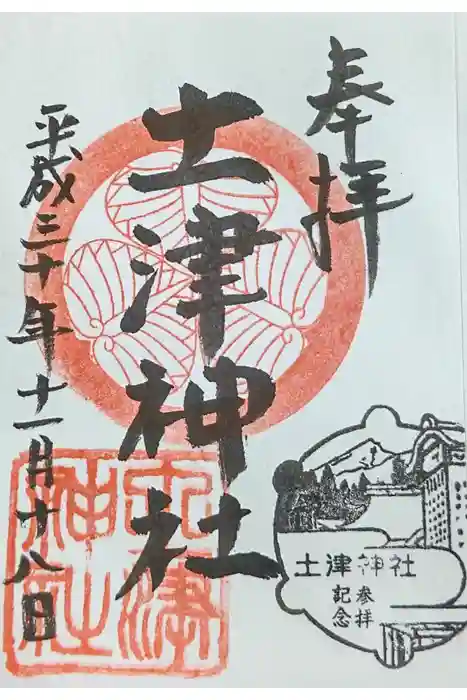 奉拝
土津神社
平成三十年十一月十八日
土津神社
土津神社
参拝
記念